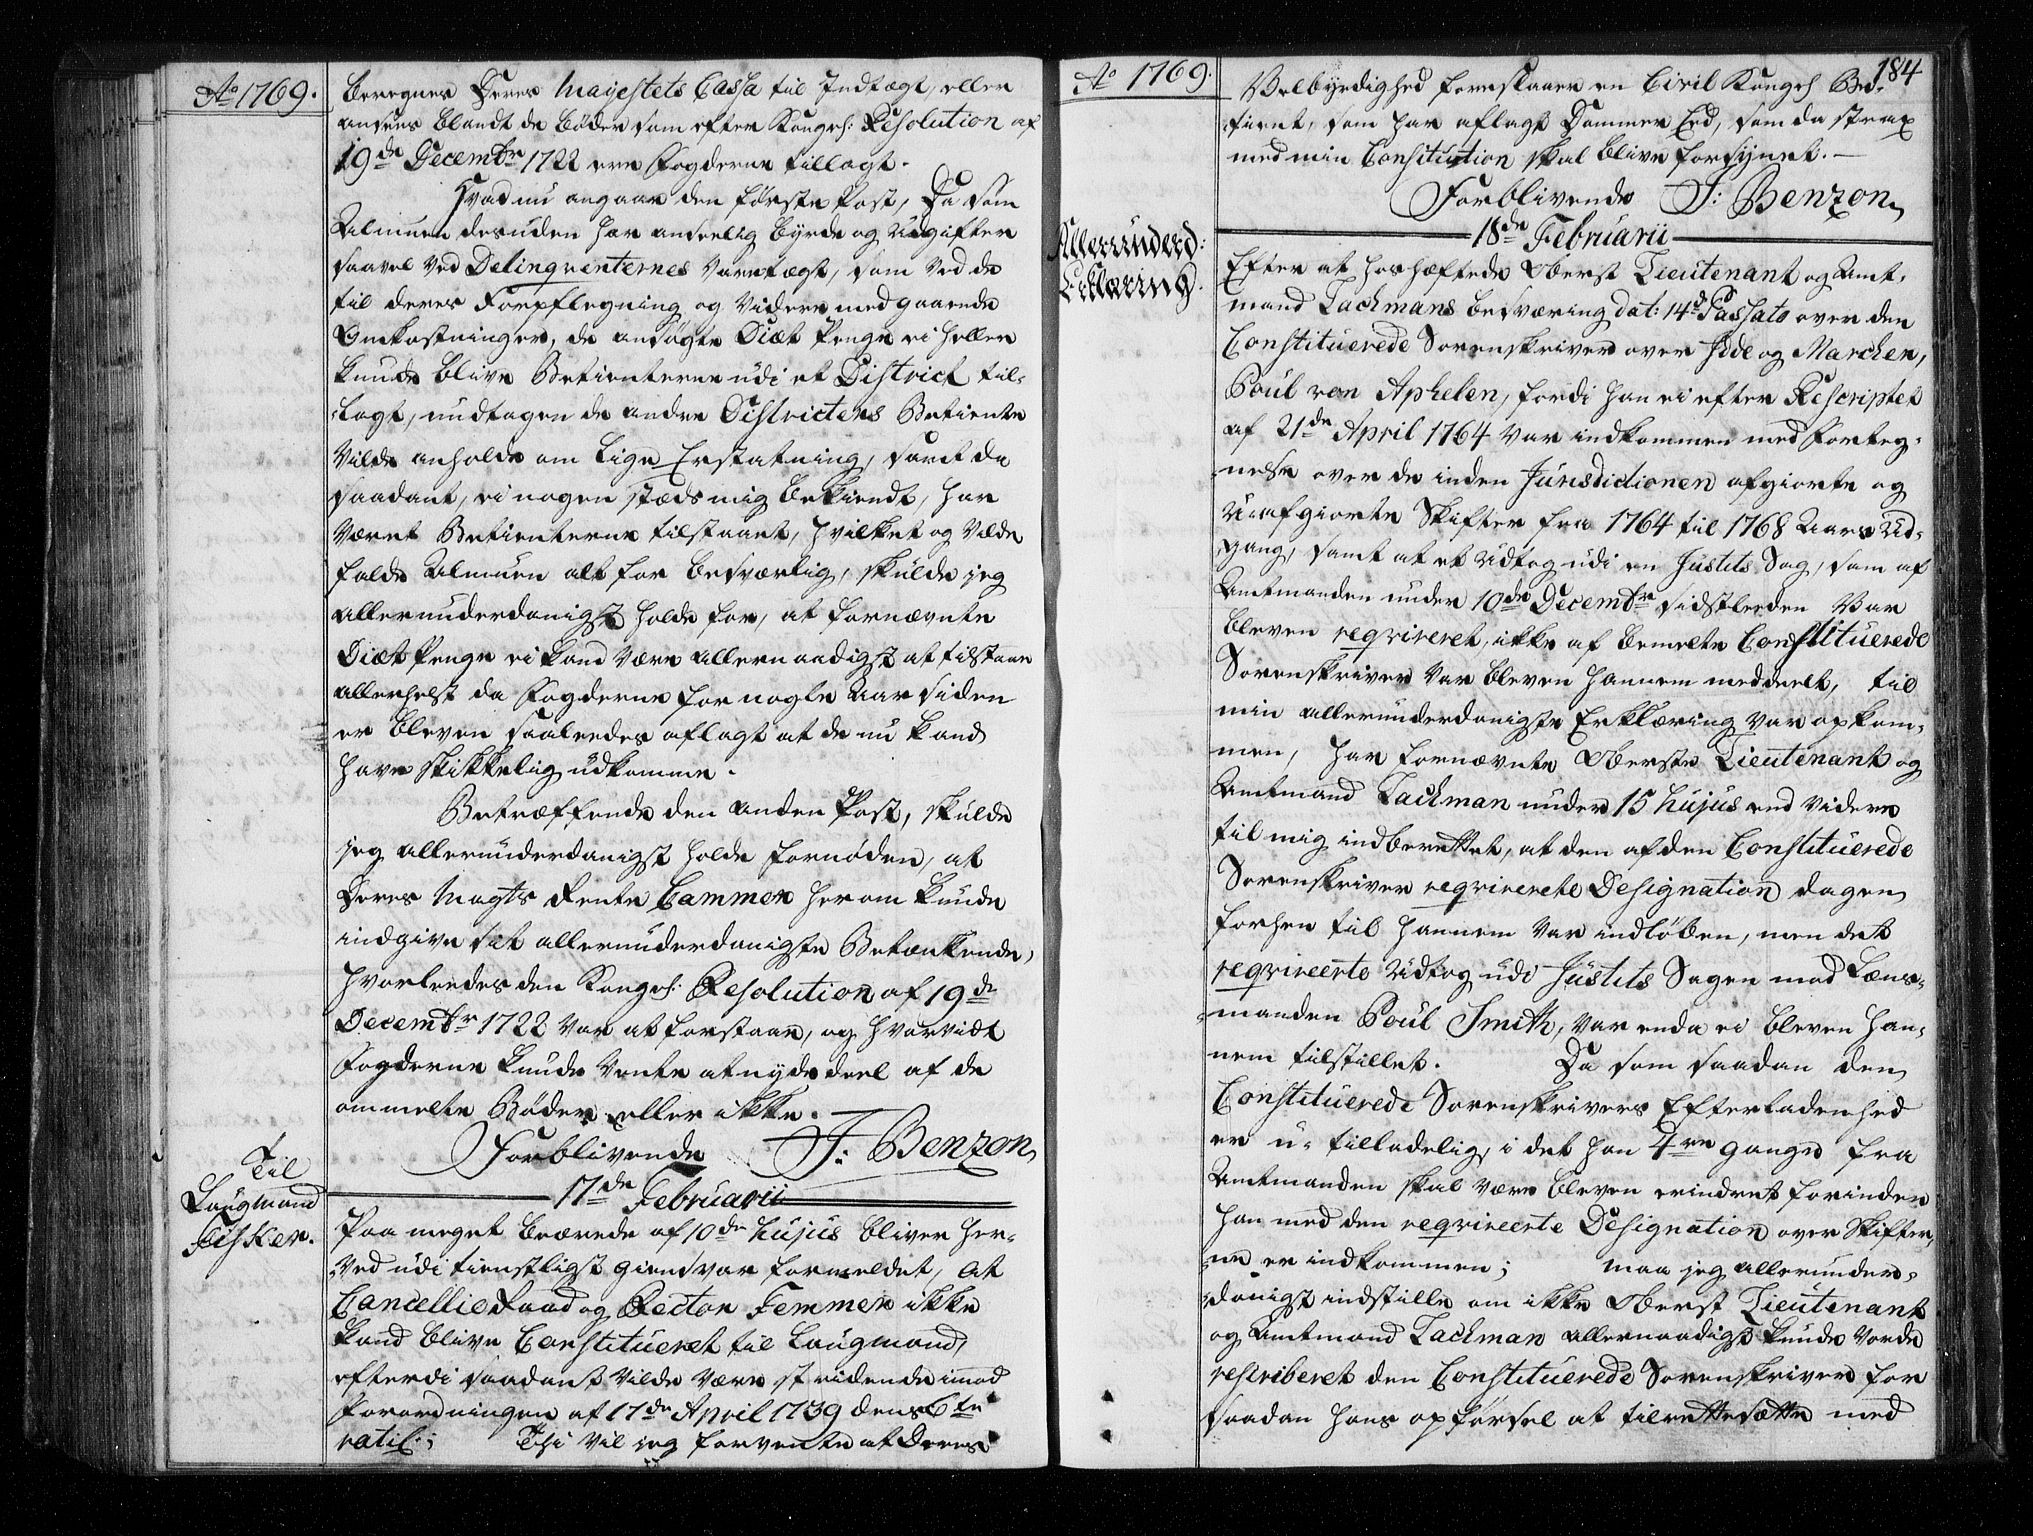 Ao 1769.
beregnes Deres Mayestets Cassa til Indtægt, eller
ansees blandt de bøder som efter Kongel: Resolution af
19de Decembr 1722 ere Fogderne tillagt.
Hvad nu angaar den første Post, Da som
Almuen desuden har anseelig byrde og Udgifter
saavel ved Delinqventernes Varetægt, som ved de
til deres Forpflegning og videre medgaaende
Omkostninger, de ansøgte Diæt Penge ei heller
kunde blive Betienterne udi et District til-
lagt, uudtagen de andre Districters Betiente
vilde anholde om lige Erstatning, samt da
saadant, ei nogen stæds mig bekiendt, har
været Betienterne tilstaaet, hvilket og vilde
falde Almuen alt for besværlig, skulde jeg
allerunderdanigst holde for, at fornævnte
Diæt Penge ei kand være allernaadigst at tilstaae
allerhelst da Fogderne for nogle Aar siden
er bleven saaledes aflagt at de nu kand
have skikkelig udkomme.
Betræffende den anden Post, skulde
jeg allerunderdanigst holde fornøden, at
Deres Mayts Rente Cammer herom kunde
indgive sit allerunderdanigste Betænkende,
hvorledes den Kongel: Resolution af 19de
Decembr 1722 var at forstaae, og hvorvidt
Fogderne kunde vente at nyde deel af de
ommelte Bøder eller ikke.
Forblivende J: Benzon
17de Februarii
Til
Laugmand
Fisker.
Paa meget beærede af 10de hujus bliver her-
ved udi tienstligst giensvar formeldet, at
Cancellie Raad og Rector Femmer ikke
kand blive Constitueret til Laugmand,
efterdi saadant vilde være stridende imod
Forordningen af 17de April 1739 dens 6te
ratif:; Thi vil jeg forvente at Deres
Ao 1769.
184
Velbyrdighed foreslaaer en Civil Kongel Be-
tient, som har aflagt Dommer Eed, som da strax
med min Consitution skal blive forsynet.
Forblivende J: Benzon
18de Februarii
Allerunderd:
Erklæring.
Efter at hoshæftede Oberst Lieutenant og Amt-
mand Tachmans besværing dat: 14de Passato over den
Constituerede Sorenskriver over Hide og Marchen,
Poul von Aphelen, fordi han ei efter Rescriptet
af 21de April 1764 var indkommen med Forteg-
nelse over de inden Jurisdictionen afgiorte og
U-afgiorte Skifter fra 1764 til 1768 Aars Ud-
gang, samt at et Udtog udi en Justits Sag, som af
Amtmanden under 10de Decembr sidstleeden var
bleven reqvireret, ikke af bemelte Constituerede
Sorenskriver var bleven hannem meddeelt, til
min allerunderdanigste Erklæring var opkom-
men, har fornævnte Oberste Lieutenant og
Amtmand Tachman under 15 hujus end videre
til mig indberettet, at den af den Constituerede
Sorenskriver reqvirerete Designation dagen
forhen til hannem var indløben, men det
reqvireerte Udtog udi Justits Sagen mod Læns-
manden Poul Smith, var enda ei bleven han-
nem tilstillet. Da som saadan den
Constituerede Sorenskrivers Efterladenhed
er u-tilladelig, i det han 4re gange fra
Amtmanden skal være bleven erindret forinden
han med den reqvireerte Designation over Skifter-
ne er indkommen; maa jeg allerunder-
danigst indstille om ikke Oberst Lieutenant
og Amtmand Tachman allernaadigst kunde vorde
rescriberet den Constituerede Sorenskriver for
saadan hans opførsel at tilrettesætte med